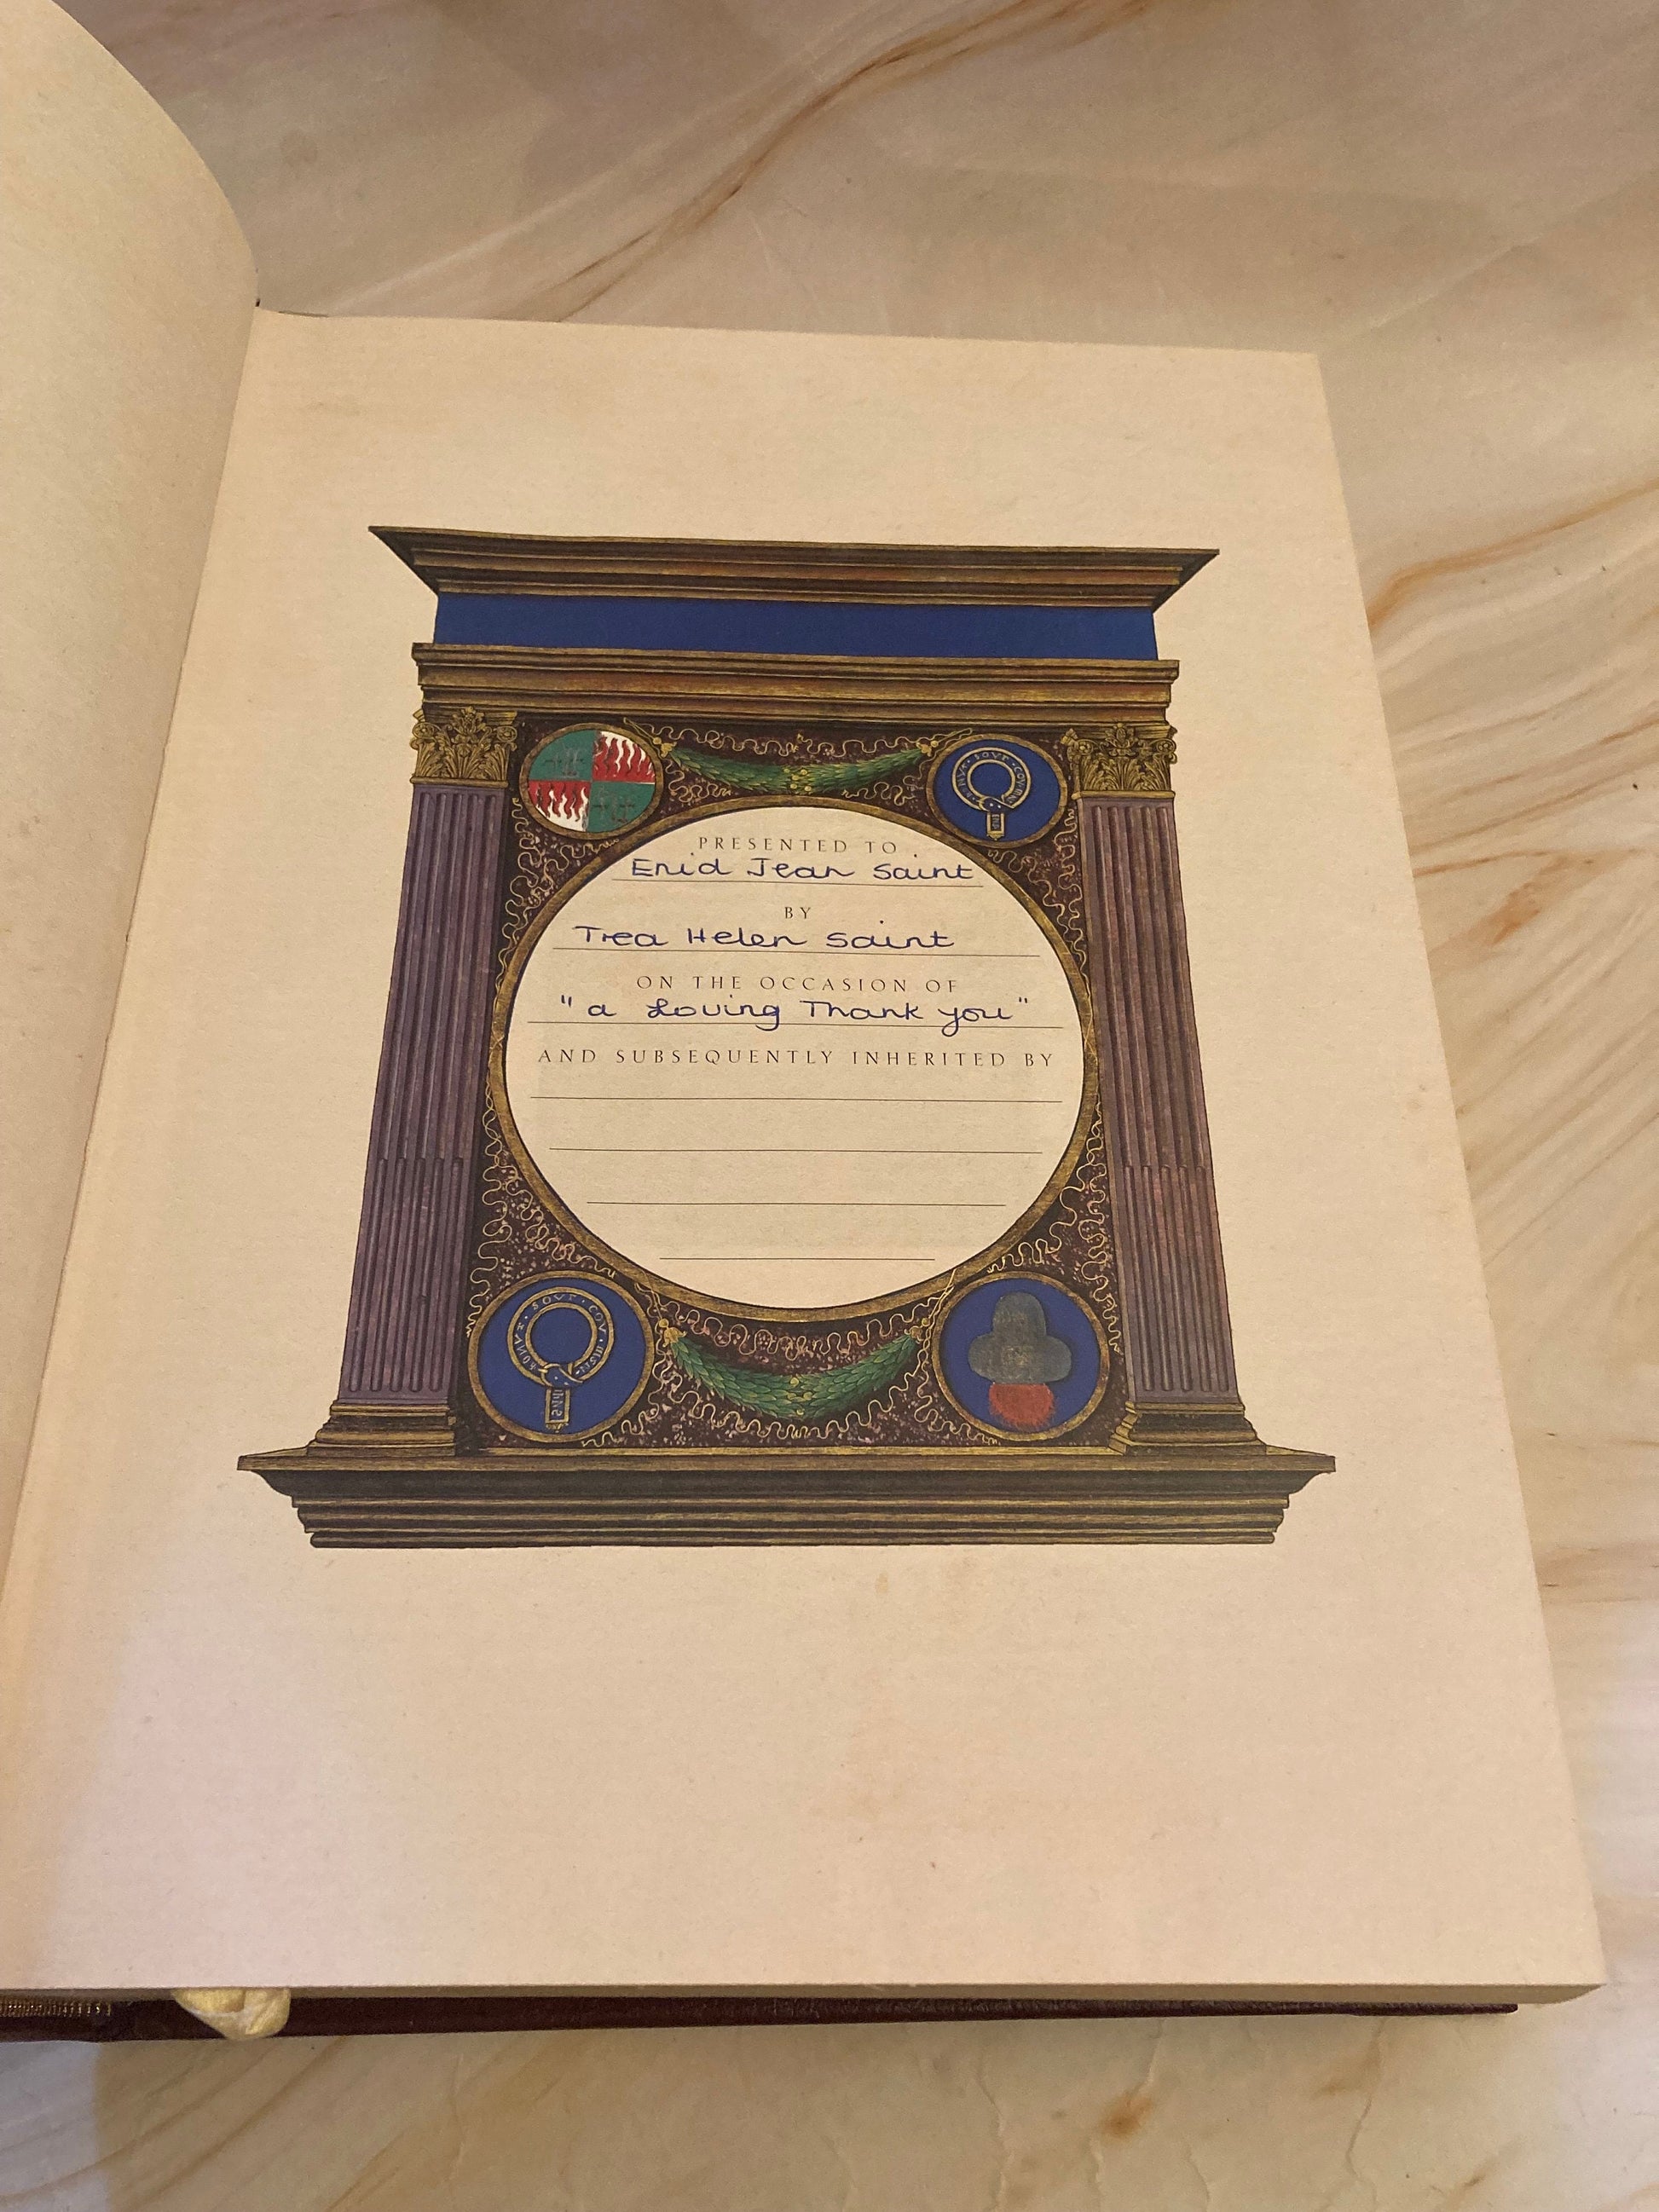 PRESENTED TO
Enid Jean Saint
BY
Trea Helen Saint
ON THE OCCASION OF
"a Loving Thank you"
AND SUBSEQUENTLY INHERITED BY